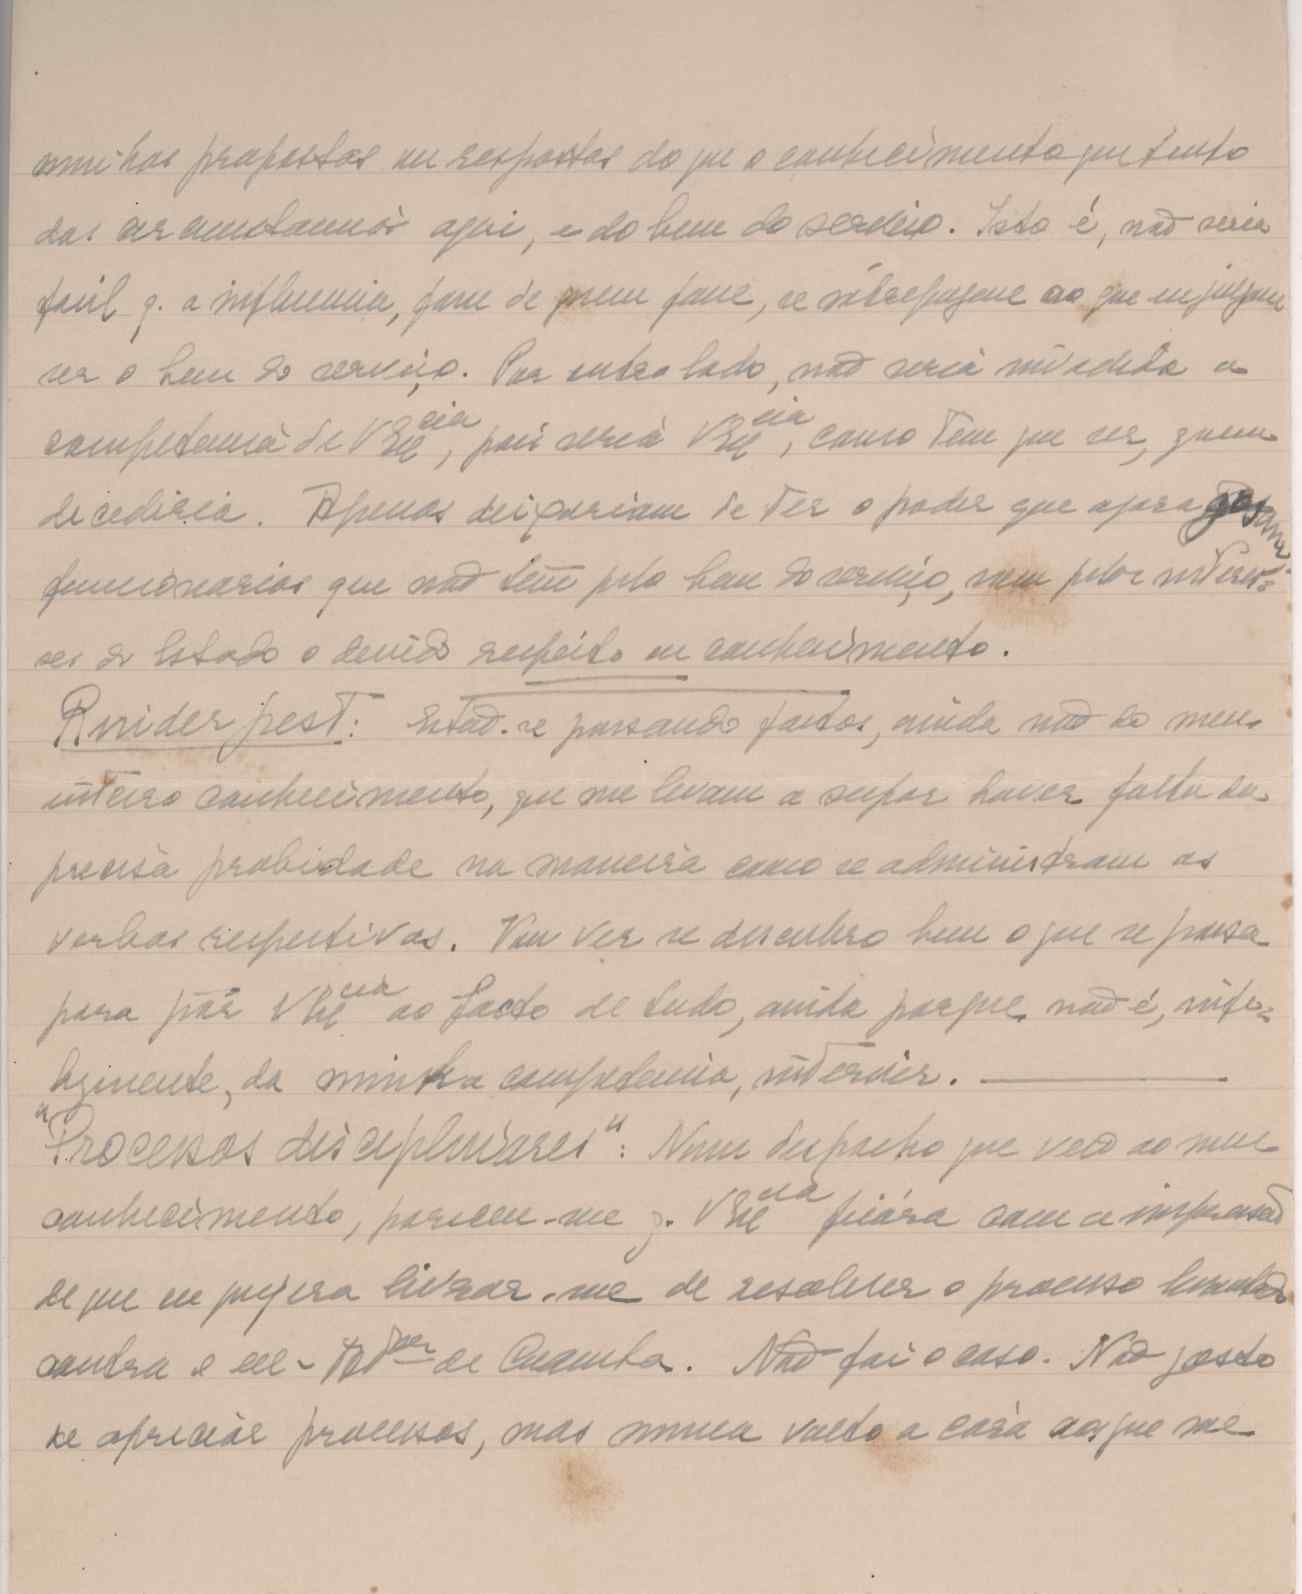 minhas propostas ou respostas do que o conhecimento que tenho
das circumstancias aqui, e do bem do serviço. Isto é, não seria
facil q. a influencia, fosse de quem fosse, se sobrepuzesse ao que eu julgasse
ser o bem do serviço. Por outro lado, não seria invadida a
competencia de VExᶜⁱᵃ, pois seria VExᶜⁱᵃ, como tem que ser, quem
decediria. Apenas deixariam de ter o poder que agora gosam
funcionarios que não teem pelo bem do serviço, nem pelos interes=
ses do Estado o devido respeito ou conhecimento.
Rinderpest: Estão-se passando factos, ainda não do meu
inteiro conhecimento, que me levam a supor haver falta da
precisa probidade na maneira como se administram as
verbas respectivas. Vou ver se descubro bem o que se passa
para pôr VExᶜⁱᵃ ao facto de tudo, ainda porque não é, infe=
lizmente, da minha competencia, intervir.
"Processos disciplinares": Num despacho que veio ao meu
conhecimento, pareceu-me q. VExᶜⁱᵃ ficára com a impressão
de que eu quizera livrar-me de resolver o processo levantado
contra o ex- de Cuamba. Não foi o caso. Não gosto
de apreciar processos, mas nunca volto a cara aos que me